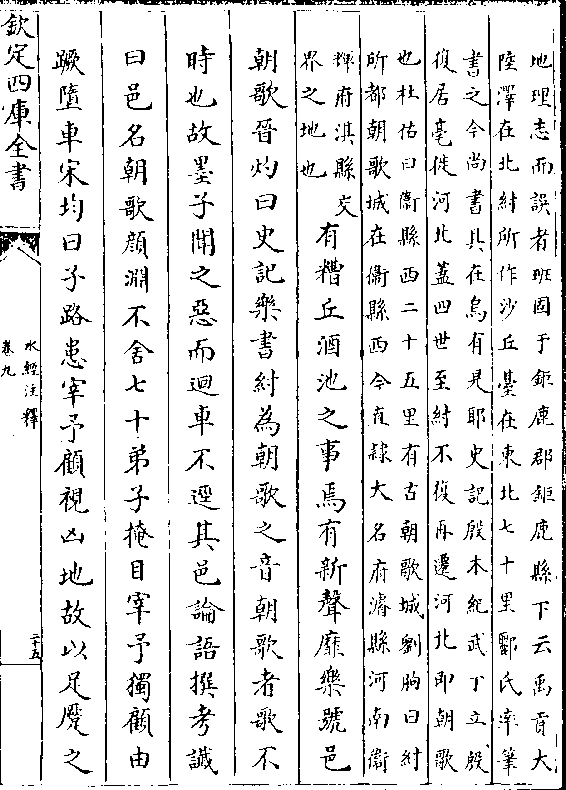 地理志而誤者班固于鉅鹿郡鉅鹿縣下云禹貢大
陸澤在北紂所作沙丘臺在東北七十里酈氏率筆
書之今尚書具在烏有是耶史記殷本紀武丁立殷
復居亳徙河北蓋四世至紂不復再遷河北即朝歌
也杜佑曰衞縣西二十五里有古朝歌城劉昫曰紂
所都朝歌城在衞縣西今直隸大名府濬縣河南衞
輝府淇縣交
界之地也
有糟丘酒池之事焉有新聲靡樂號邑
朝歌晉灼曰史記樂書紂為朝歌之音朝歌者歌不
時也故墨子聞之惡而迴車不逕其邑論語撰考讖
曰邑名朝歌顔淵不舍七十弟子掩目宰予獨顧由
蹶墮車宋均曰子路患宰予顧視凶地故以足蹷之
欽定四庫全書
水經注釋
卷九
二十五